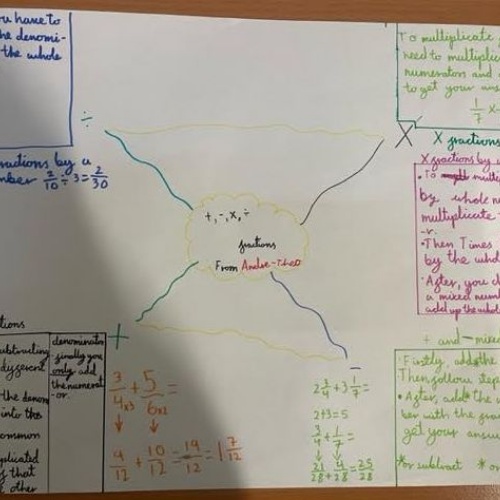 ou have to
he denomi-
the whole
÷
ractions by a
mber 2/10 ÷ 3 = 2/30
To multiplicate
need to multiplic
numerators and
to get your ans
1/7 x
X
X fractions
X fractions by
• To multi
by whole n
multiplicate
-r.
• Then Times
by the whol
• After, you c
a mixed numb
add up the whol
+, -, x, ÷
fractions
From Andre-Theo
+
-
tions
ubtracting
different
the denom
into the
common
plicated
that
other
denominator
finally you
only add
the numerat
-or.
3/4 x3 + 5/6 x2 =
9/12 + 10/12 = 19/12 = 1 7/12
2 3/4 + 3 1/7 =
2+3=5
3/4 + 1/7 =
21/28 + 4/28 = 25/28
+ and - mixe
• Firstly add the
Then follow step
• After, add the w
ber with the frac
get your answ
*or subtract * o